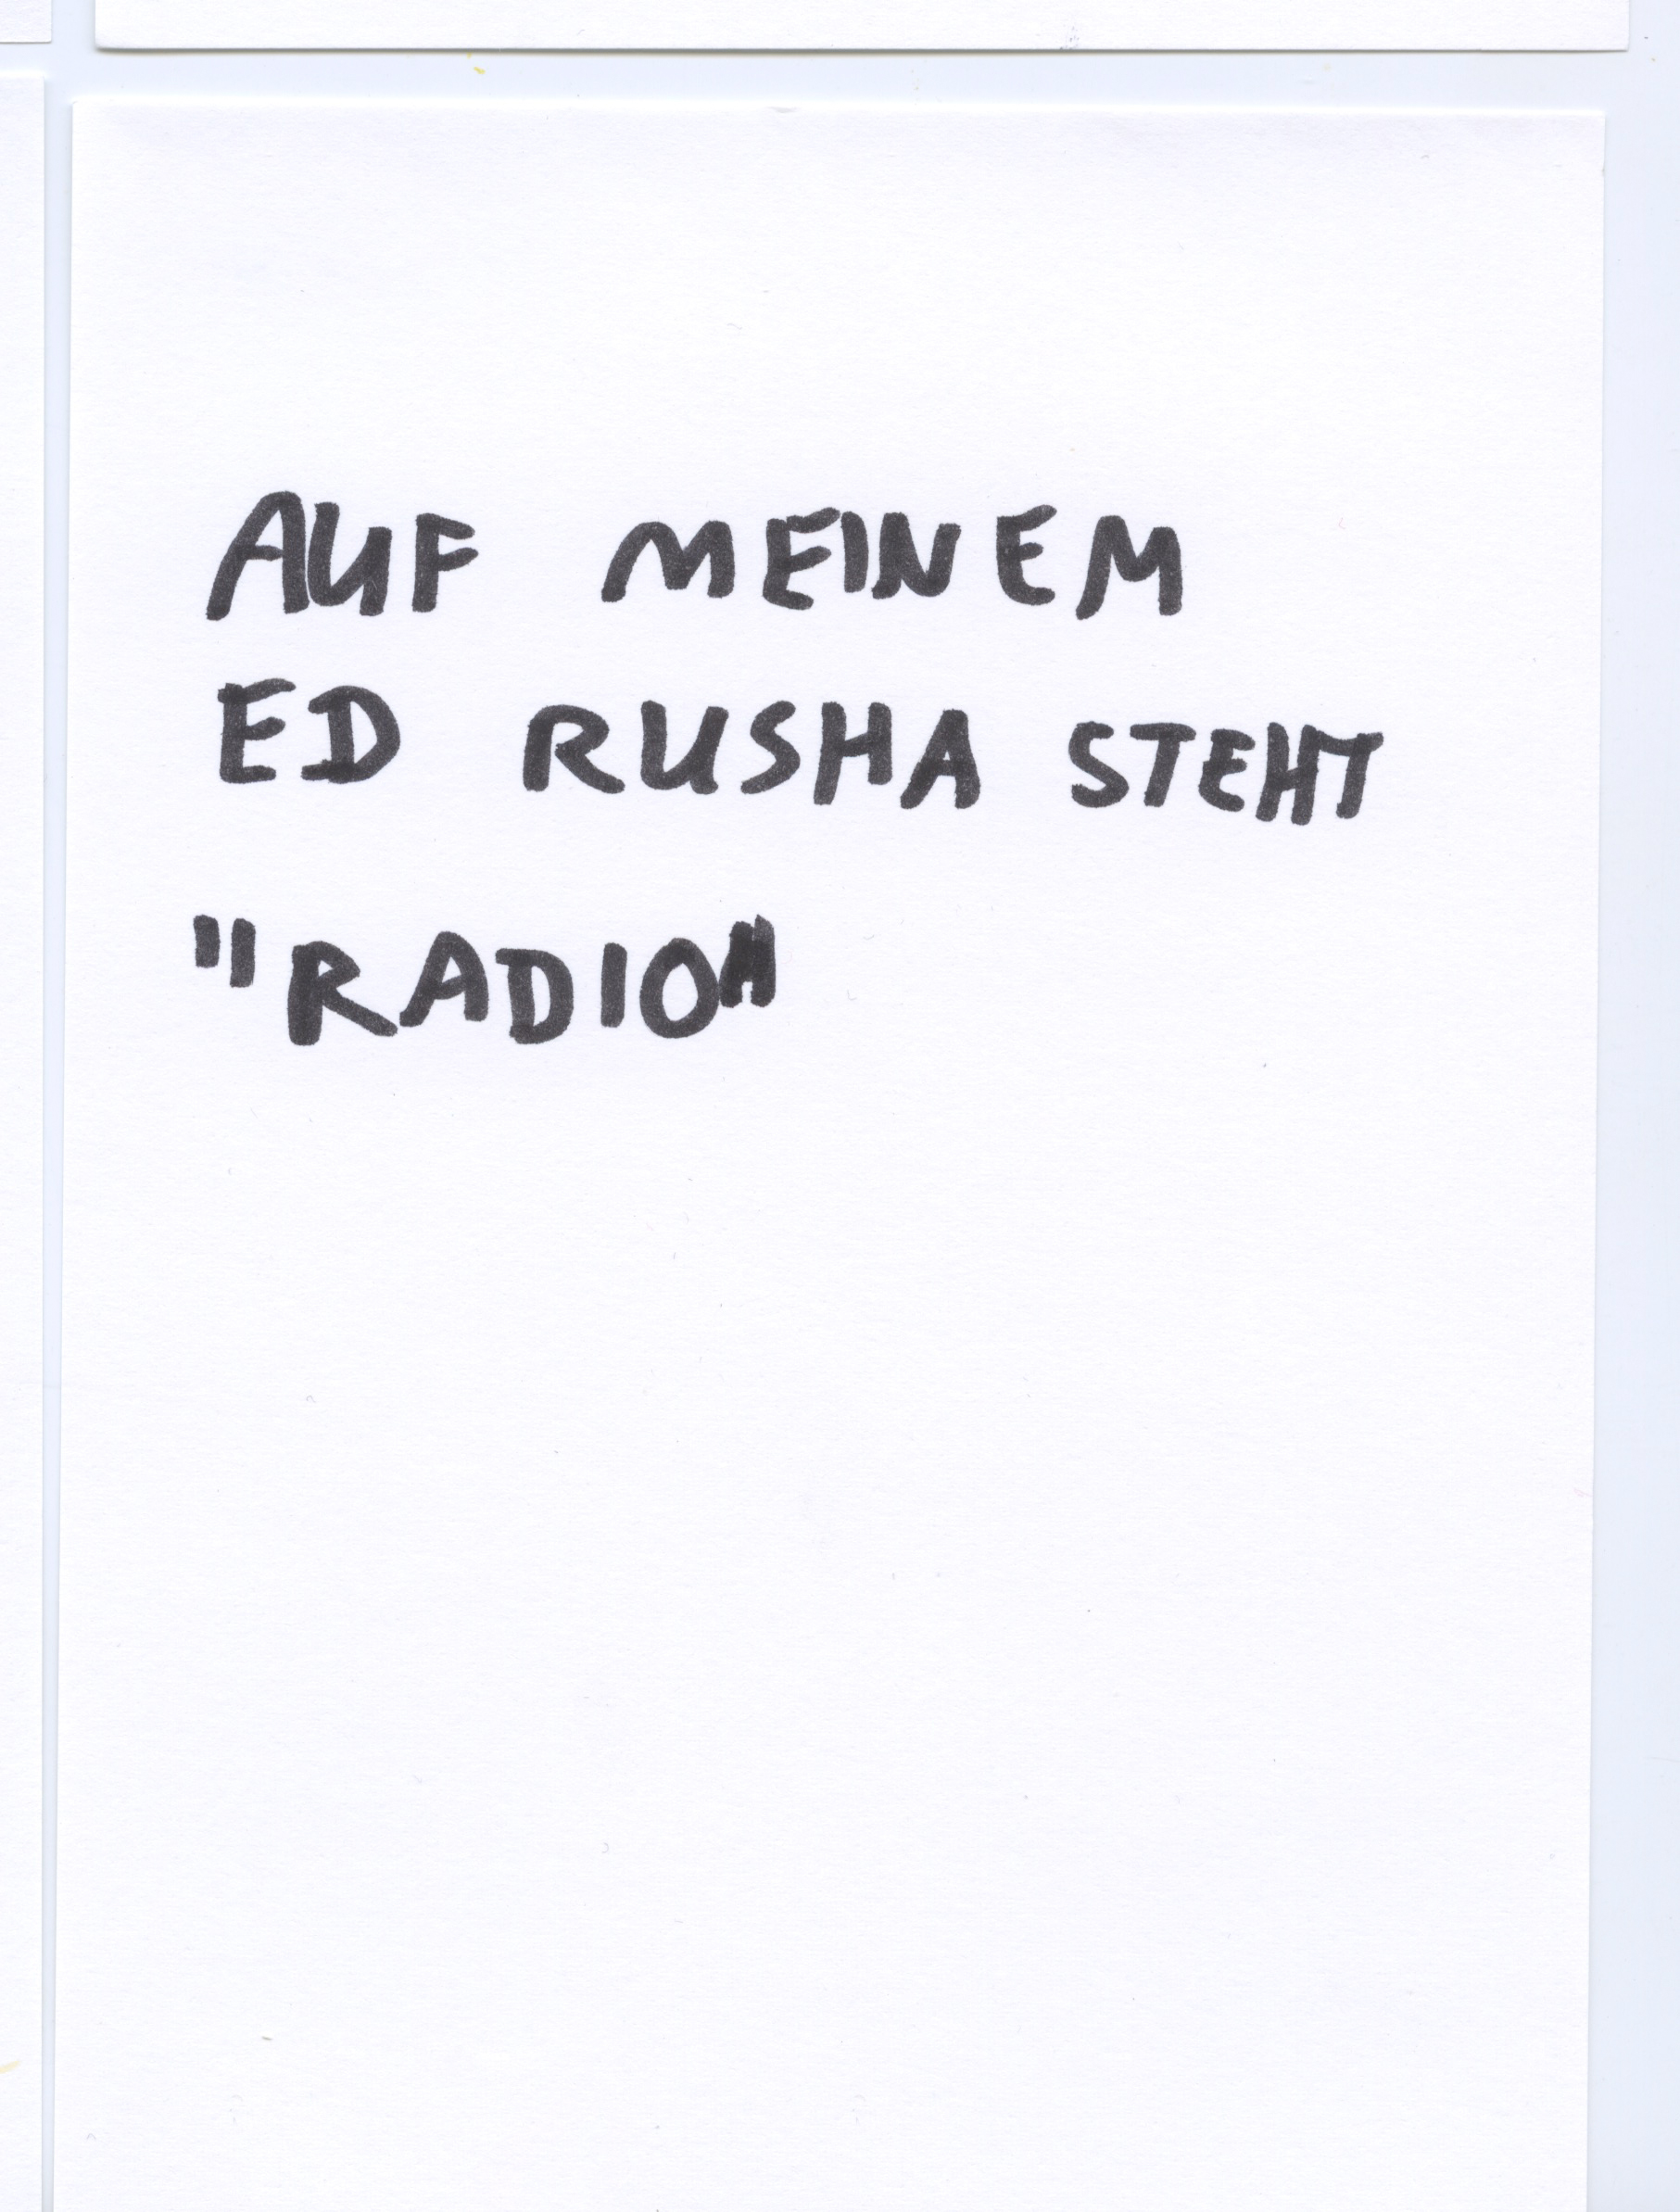 AUF MEINEM
ED RUSHA STEHT
"RADIO"